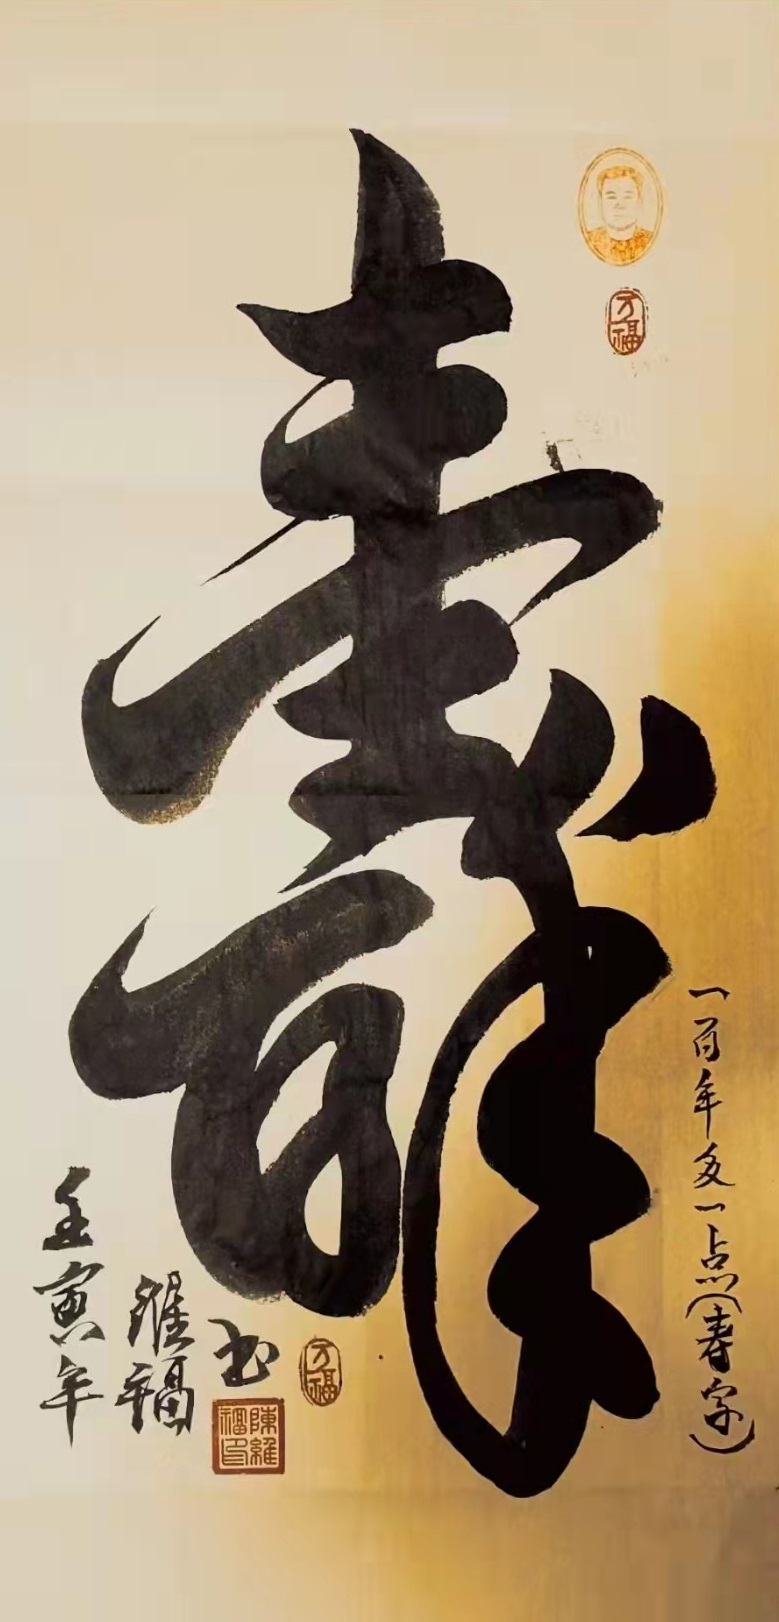 万福
一百年多一点(寿字)
壽
壬寅年
維福
书
万福
陳維福印